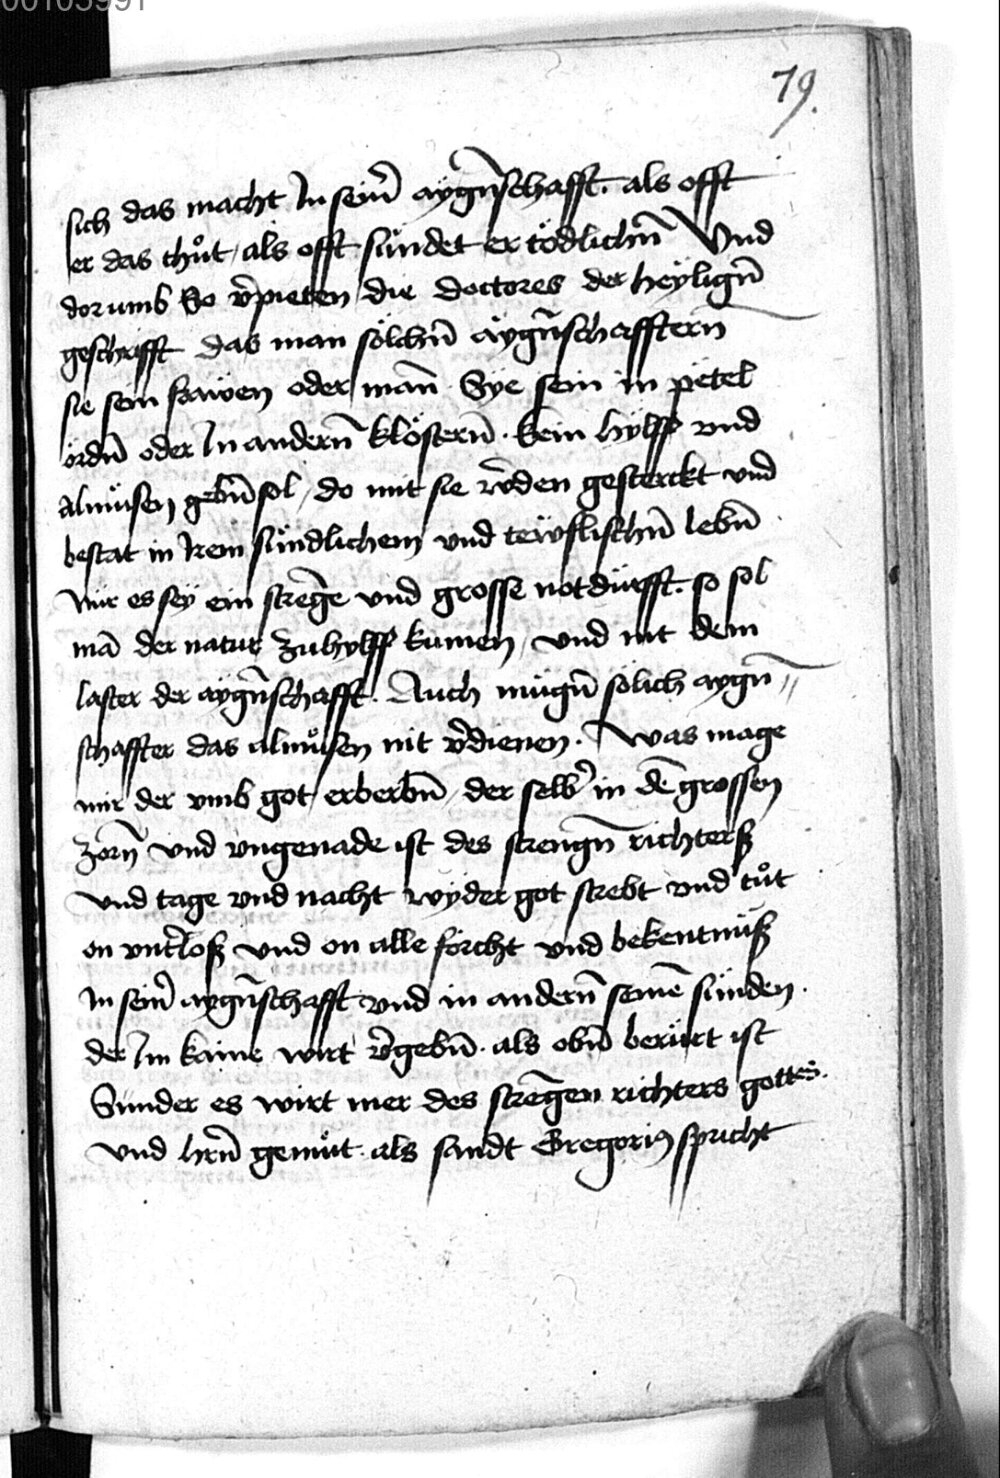 00103991
79.
sich das macht In sein̄ aygn̄schafft. als offt
er das thůt / als offt sündet er tödlichn̄ Vnd
dorumb So v̄pieten die doctores der heylign̄
geschrifft das man sölchn̄ äygn̄schafftern̄
sie sein frawen oder man̄ Sye sein in petel
ördn̄ oder In andern̄ klöstern̄. kein hylff vnd
almůsen gebn̄ sol / do mit sie w̄den gesterckt vnd
bestat in Irem sündlichem vnd tewflischn̄ lebn̄
Nur es sey ein strēge vnd grosse notdürfft. so sol
mā der natur zu hylff kumen / vnd nit dem
laster der aygn̄schafft. Auch mügn̄ sölich aygn̄
schaffter das almůsen nit v̄dienen. Was mage
mir der vmb got erberbn̄ / der selb in dē grossen
zorn̄ vnd vngenade ist des strengn̄ richterß
vnd tage vnd nacht wyder got strebt vnd tůt
on vnt̄loß vnd on alle forcht vnd bekentnüß
In sein̄ aygn̄schafft vnd in andern̄ seinē sünden.
der Im kaine wirt v̄gebn̄. als obn̄ berürt ist
Sunder es wirt mer des strēgen richters gottes.
vnd hrn̄ gemůt. als sandt Gregorius spricht